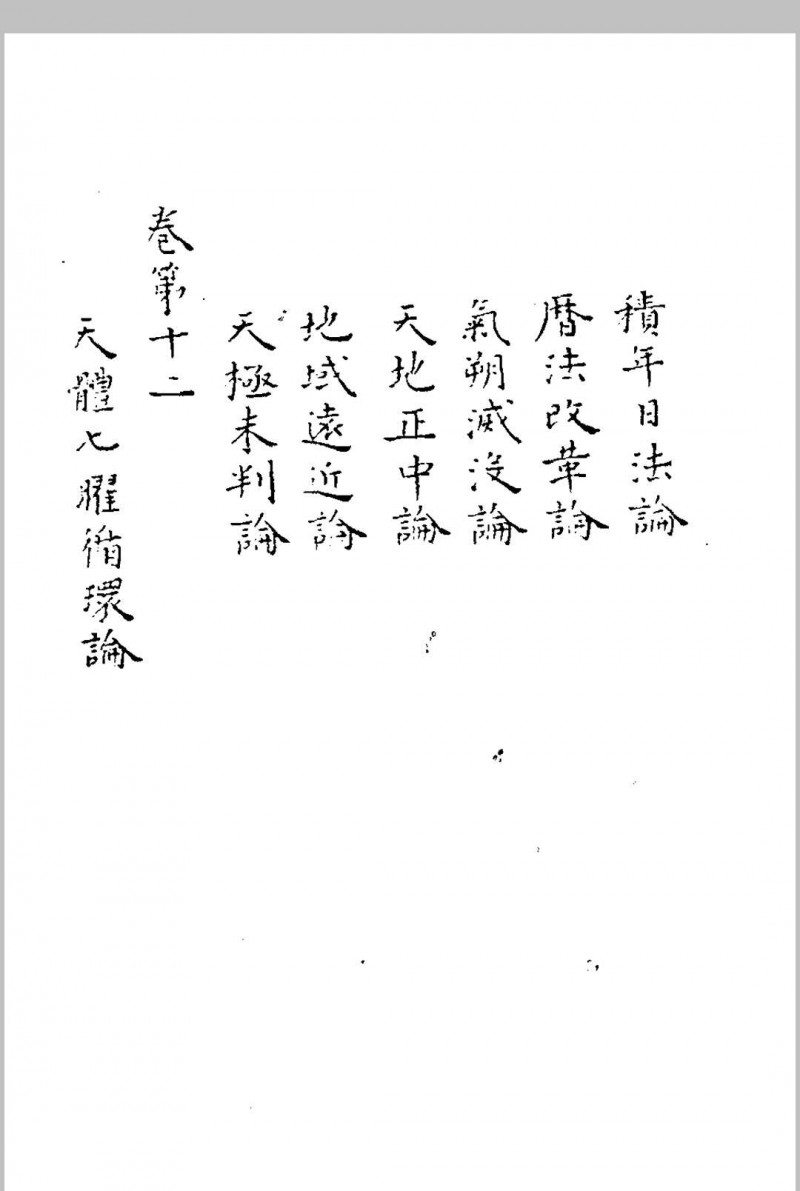 積年日法論
曆法改革論
氣朔滅没論
天地正中論
地域遠近論
天極未判論
卷第十二
天體七曜循環論